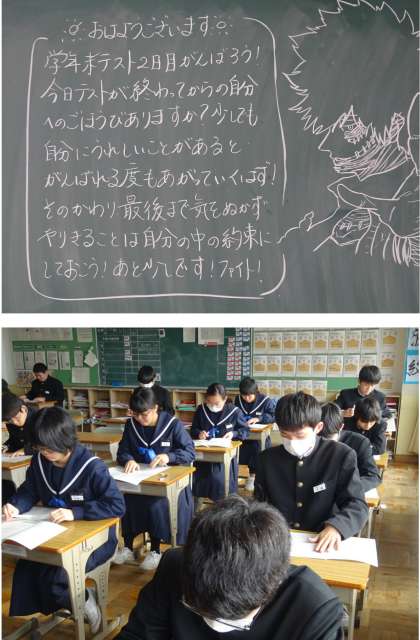 おはようございます
学年末テスト2日目がんばろう!
今日テストが終わってからの自分
へのごほうびありますか?少しでも
自分にうれしいことがあると
がんばれる度もあがっていくはず!
そのかわり最後まで気をぬかず
やりきることは自分の中の約束に
しておこう!あと少しです!ファイト!